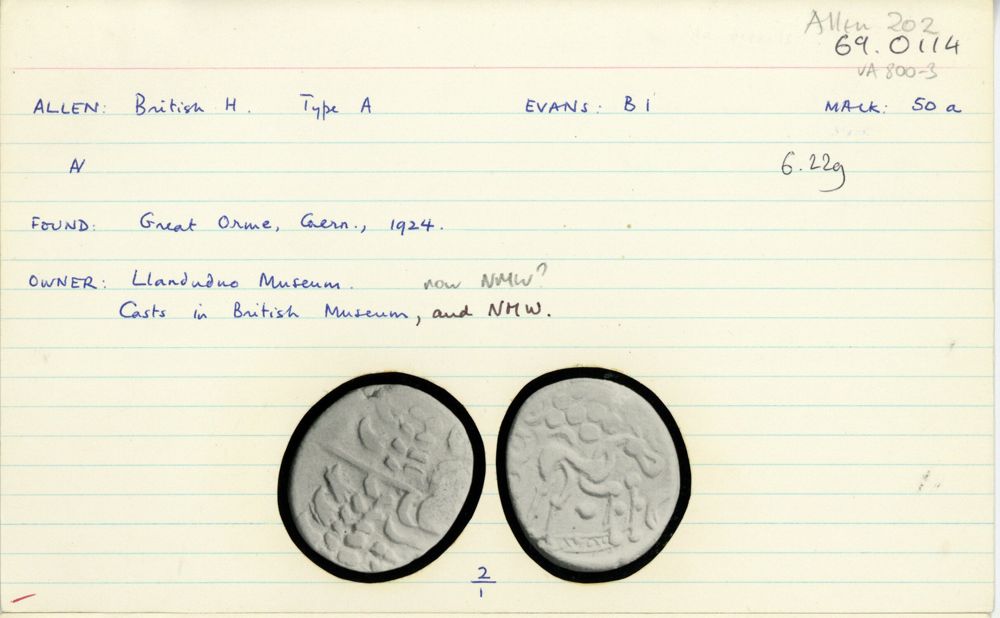 Allen 202
69.0114
VA 800-3
ALLEN: British H. Type A EVANS: B 1 MACK: 50 a
N 6.22g
FOUND: Great Orme, Caern., 1924.
OWNER: Llandudno Museum. now NMW?
Casts in British Museum, and NMW.
2
1